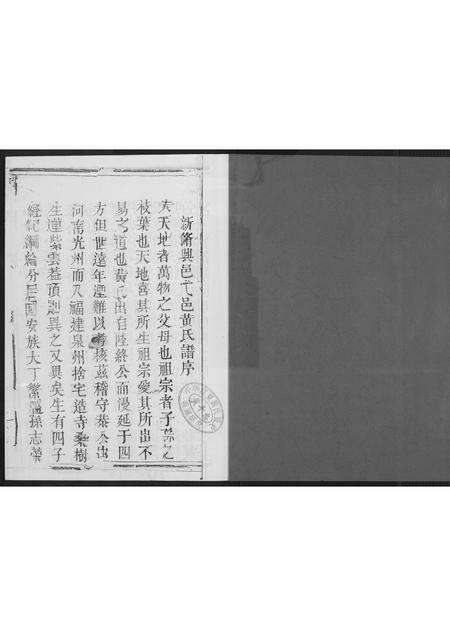 新脩興邑弋邑黄氏譜序
夫天地者萬物之父母也祖宗者子孫之
枝葉也天地喜其所生祖宗愛其所出不
易之道也黄氏出自陸終公而漫延于四
方但世遠年湮難以考核茲稽守恭公出
河南光州而入福建泉州捨宅造寺桑樹
生蓮紫雲蓋頂異之又異矣生有四子
經紀綸分居安族大丁繁孫志榮